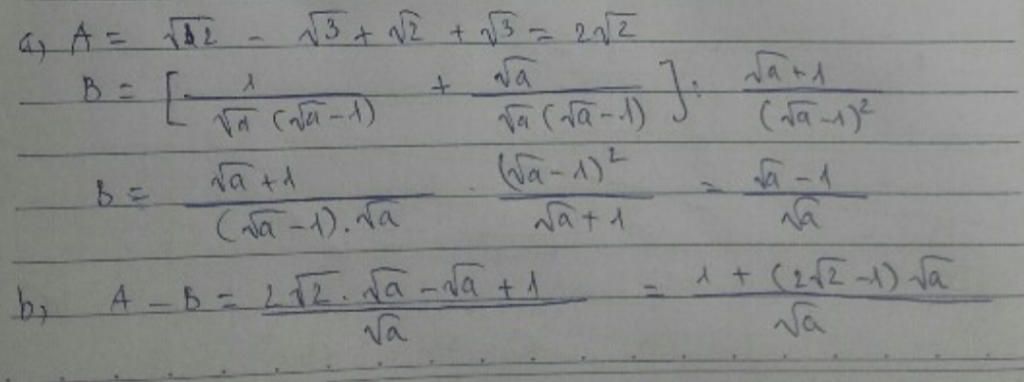 a, A = √2 - √3 + √2 + √3 = 2√2
B = [ 1 / √a (√a - 1) + √a / √a (√a - 1) ] : √a + 1 / (√a - 1)²
B = √a + 1 / (√a - 1) . √a . (√a - 1)² / √a + 1 = √a - 1 / √a
b, A - B = 2√2 . √a - √a + 1 / √a = 1 + (2√2 - 1) √a / √a